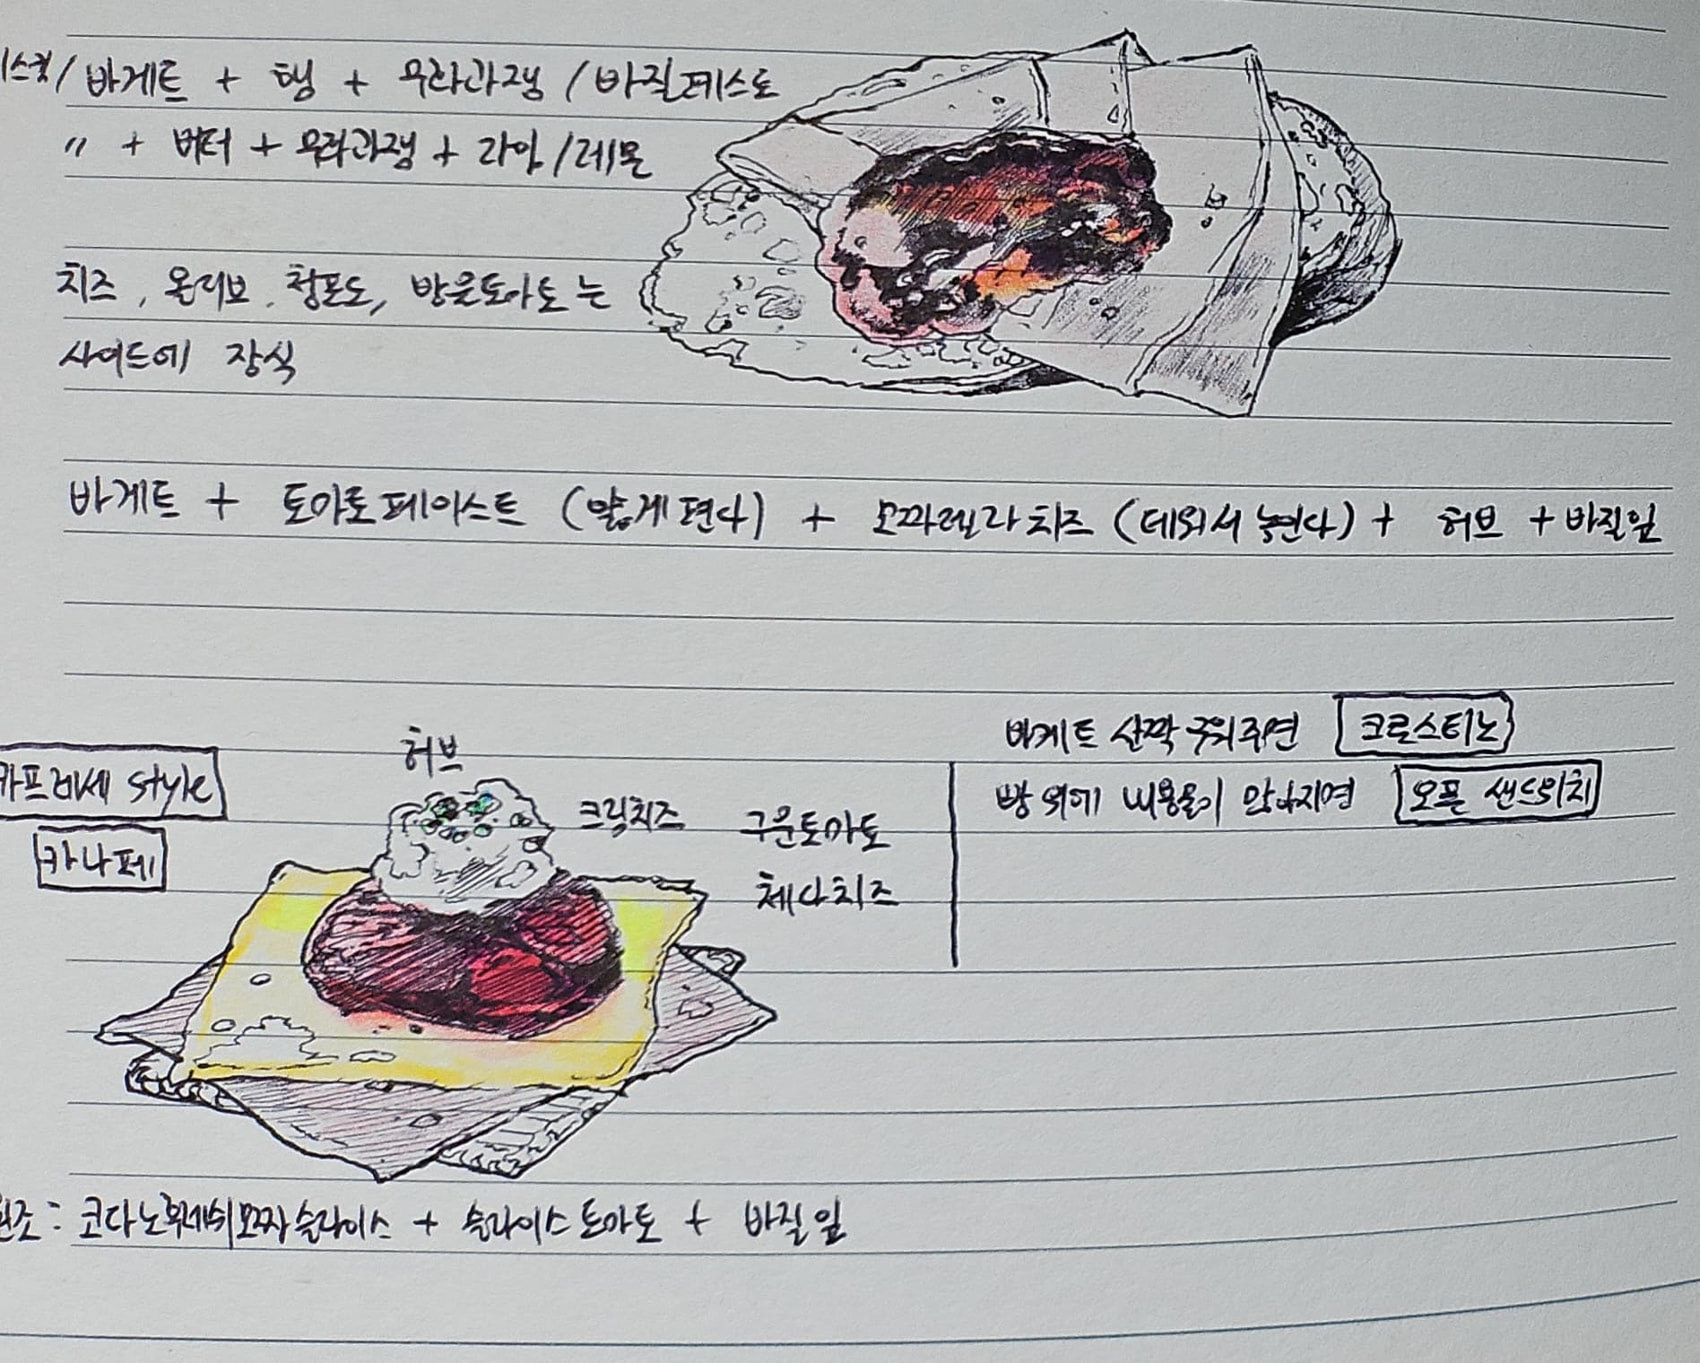 바게트 + 햄 + 무화과잼 / 바질페스토
〃 + 버터 + 무화과잼 + 라임 / 레몬
치즈, 올리브, 청포도, 방울토마토는
사이드에 장식
바게트 + 토마토페이스트 (얇게 편다) + 모짜렐라치즈 (데워서 녹인다) + 허브 + 바질잎
카프레세 style
카나페
허브
크림치즈
구운토마토
체다치즈
바게트 살짝 구워주면 크로스티노
빵 위에 내용물이 많아지면 오픈 샌드위치
원조: 코다노후레쉬모짜슬라이스 + 슬라이스토마토 + 바질잎